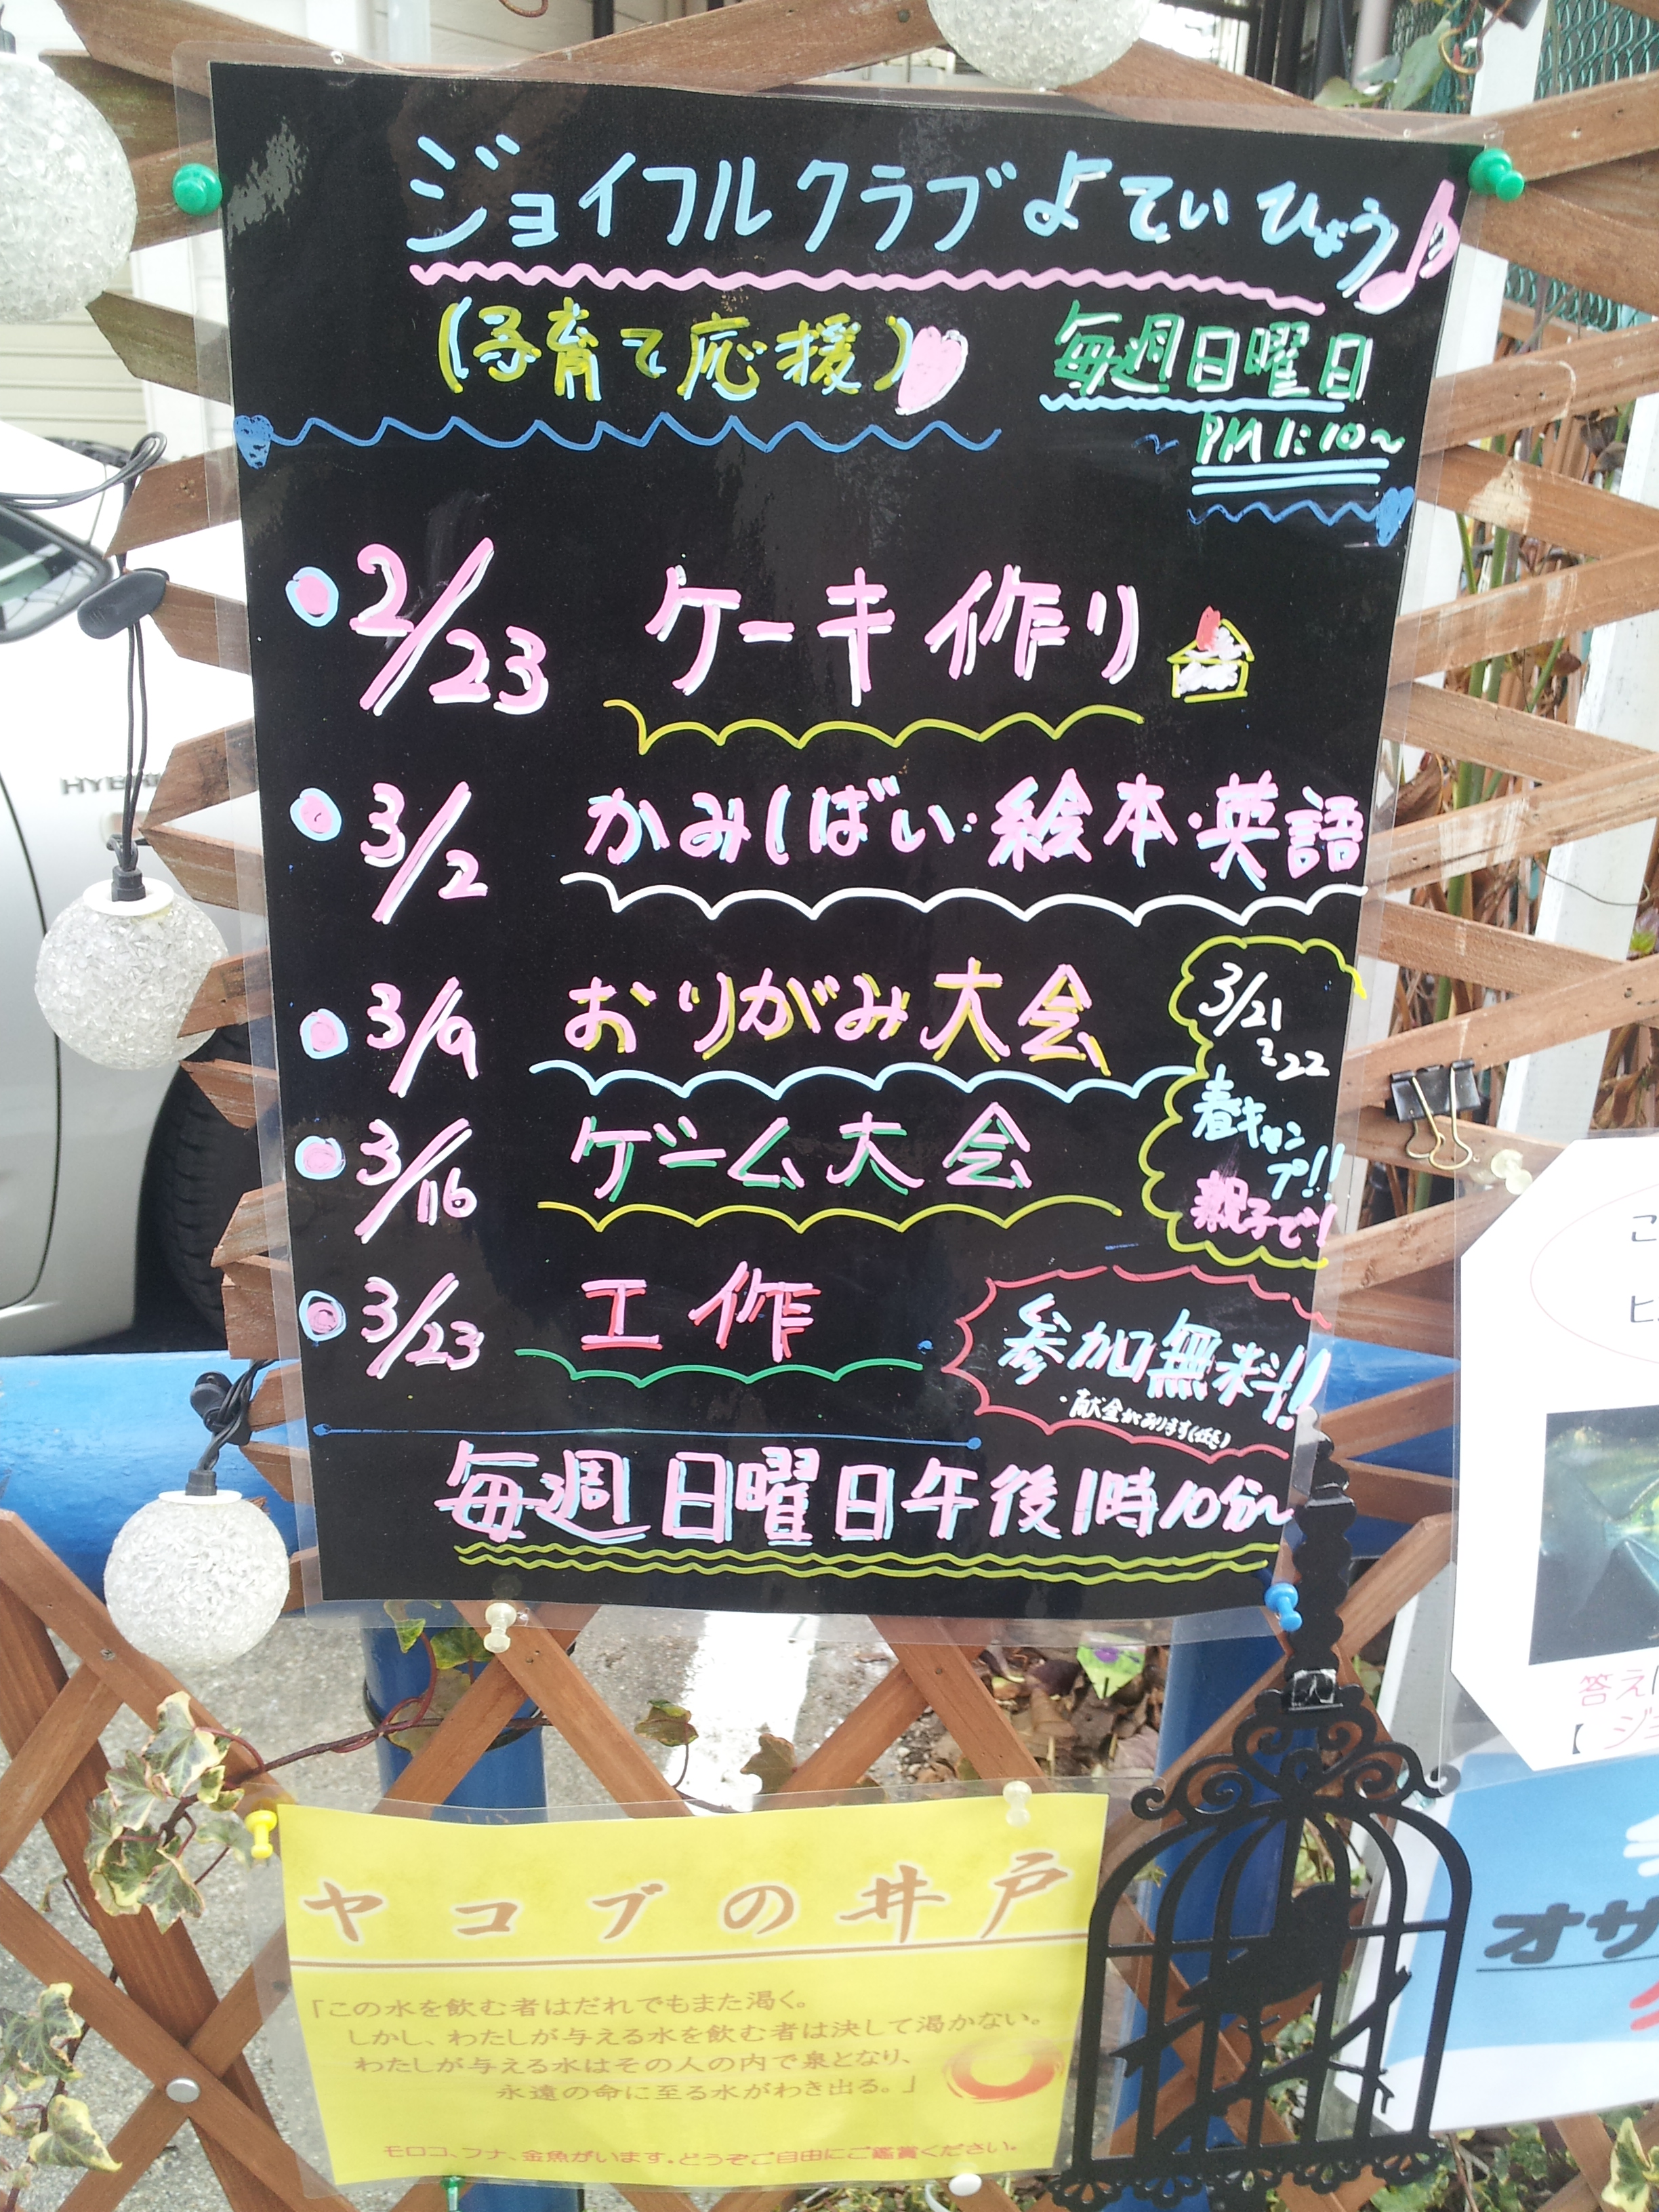 ジョイフルクラブよていひょう♪
(子育て応援)
毎週日曜日
PM1:10~
2/23 ケーキ作り
3/2 かみしばい・絵本・英語
3/9 おりがみ大会
3/16 ゲーム大会
3/21
~22
春キャン
プ!!
親子で!
3/23 工作
参加無料!!
・献金があります(任意)
毎週日曜日午後1時10分~
HYBRID
ヤコブの井戸
「この水を飲む者はだれでもまた渇く。
しかし、わたしが与える水を飲む者は決して渇かない。
わたしが与える水はその人の内で泉となり、
永遠の命に至る水がわき出る。」
モロコ、フナ、金魚がいます。どうぞご自由にご鑑賞ください。
こ
ヒ
答え
【ジ
オサ